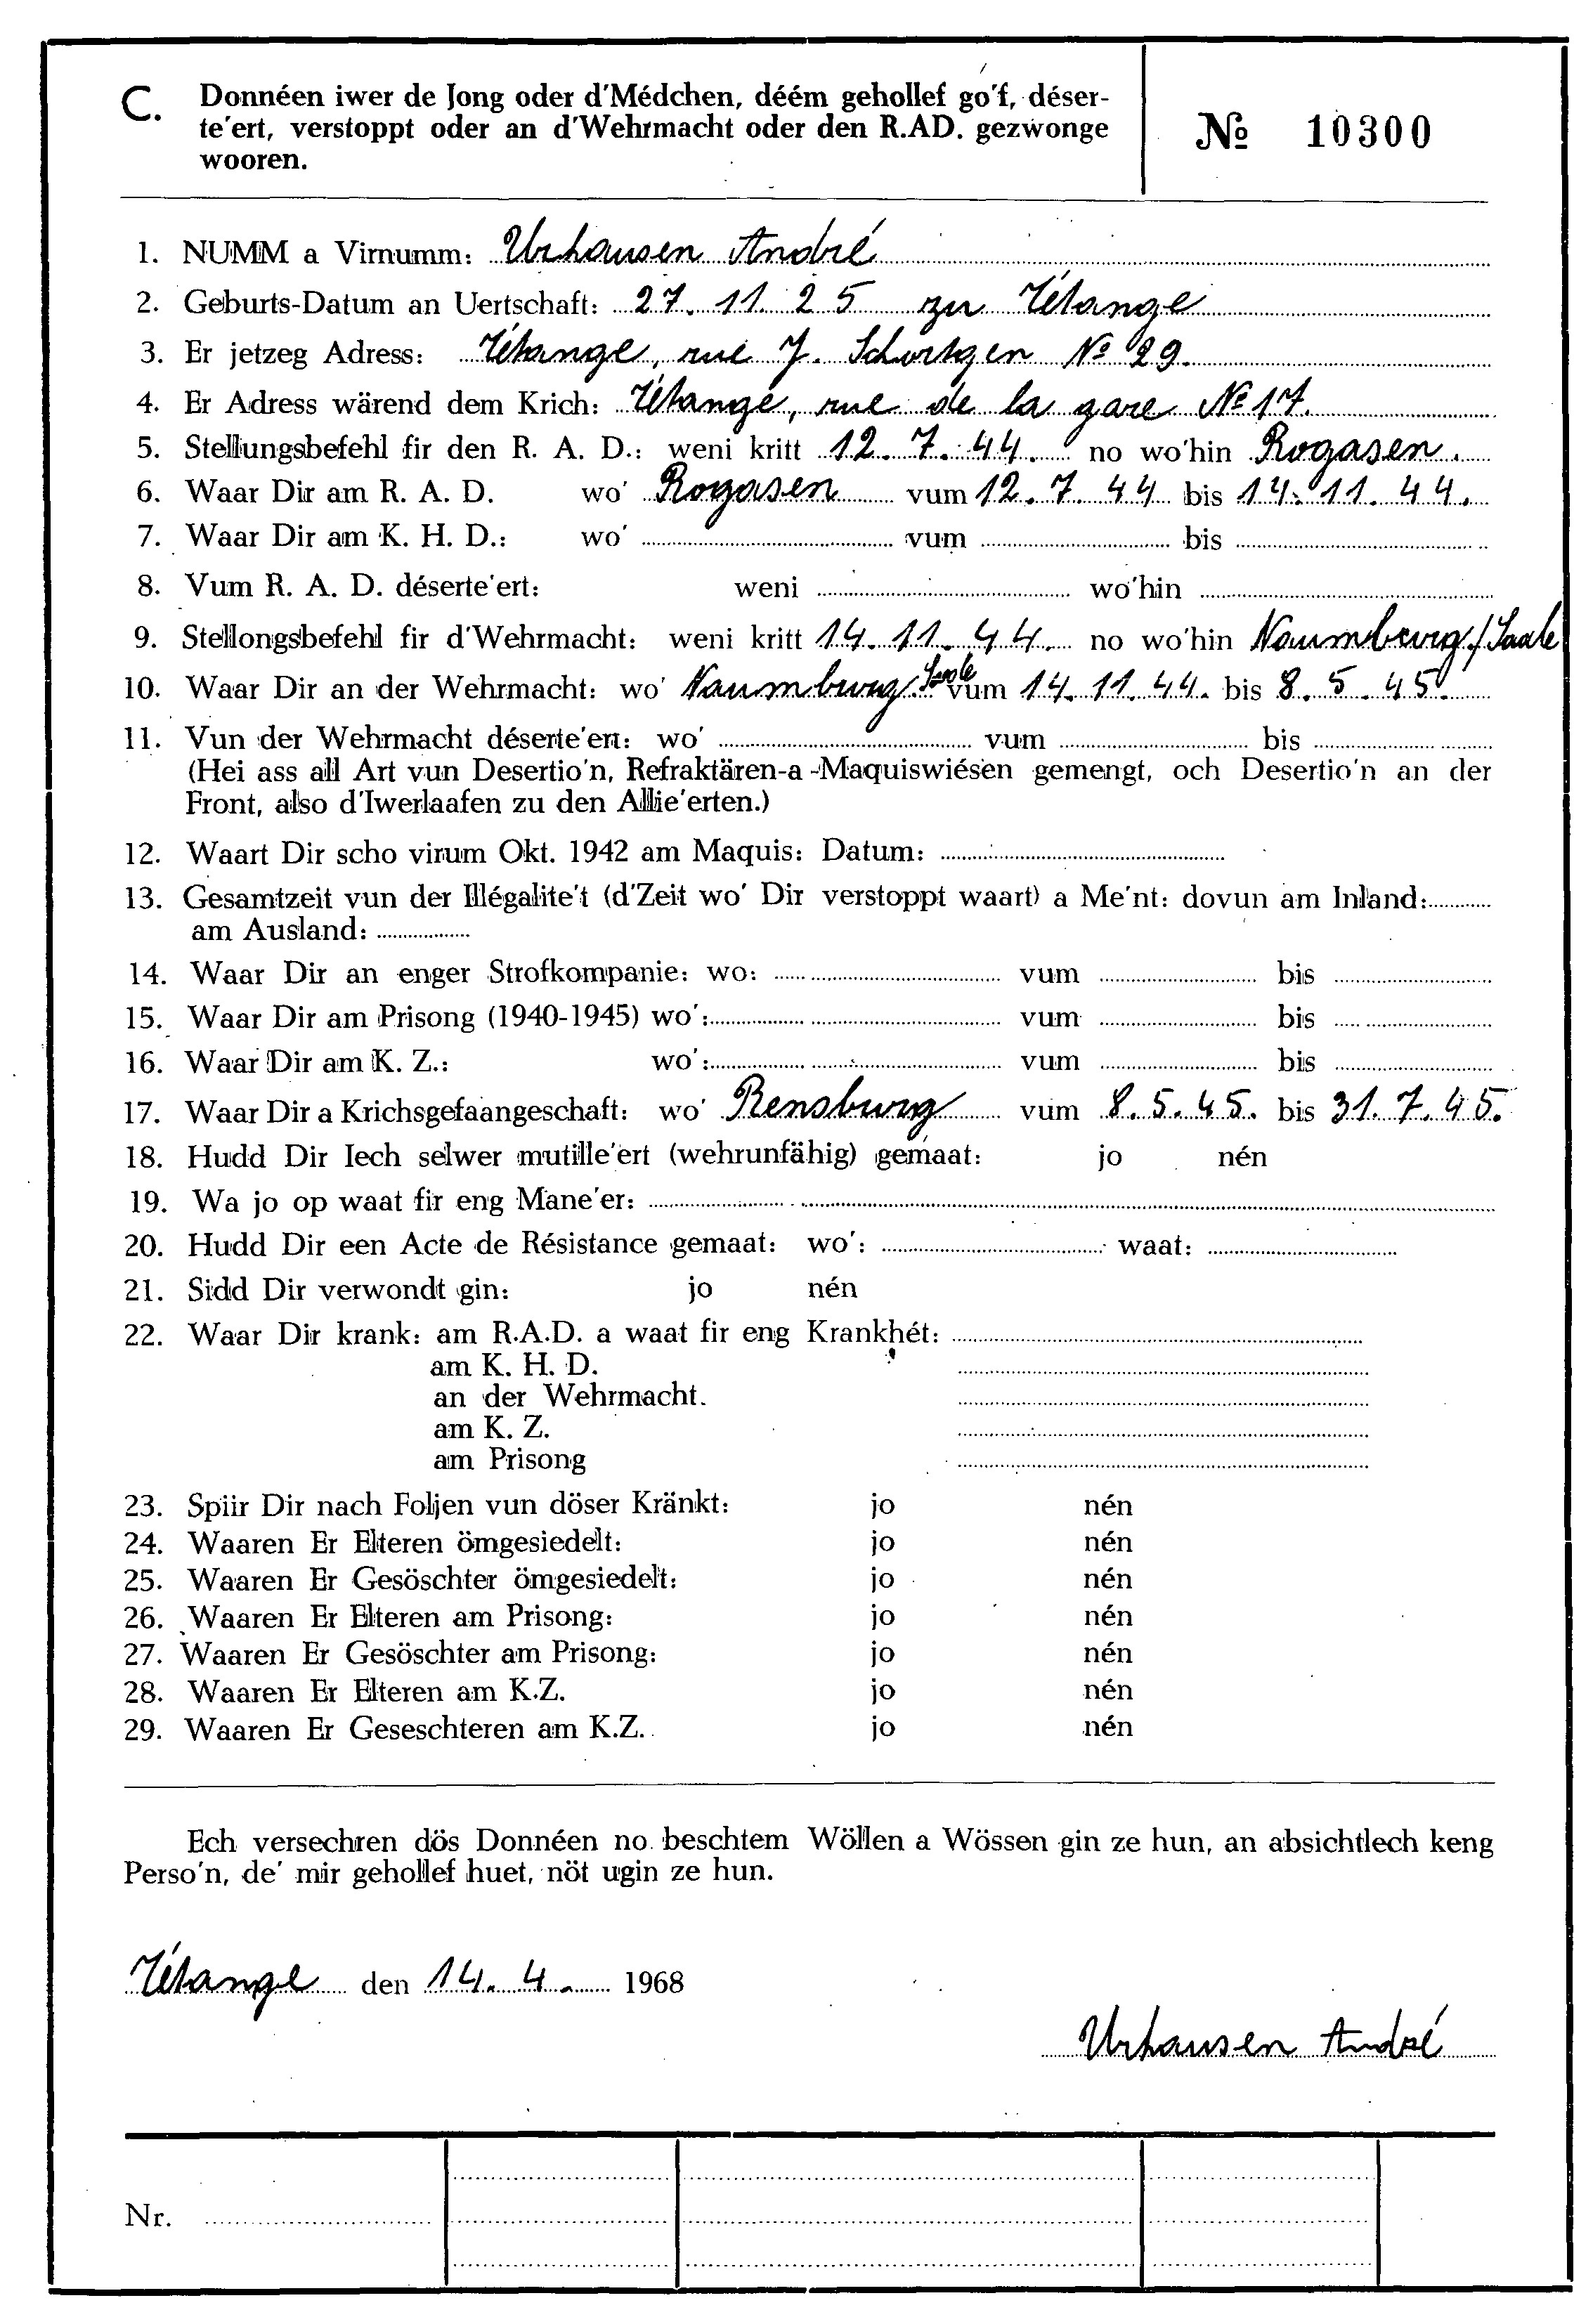 C. Donnéen iwer de Jong oder d'Médchen, déém gehollef go'f, déser-
te'ert, verstoppt oder an d'Wehrmacht oder den R.AD. gezwonge
wooren.
№ 10300
1. NUMM a Virnumm: Urhausen André
2. Geburts-Datum an Uertschaft: 27. 11. 25 zu Tétange
3. Er jetzeg Adress: Tétange, rue J. Schortgen № 29.
4. Er Adress wärend dem Krich: Tétange, rue de la gare № 17.
5. Stellungsbefehl fir den R. A. D.: weni kritt 12. 7. 44. no wo'hin Rogasen.
6. Waar Dir am R. A. D. wo' Rogasen vum 12. 7. 44 bis 14. 11. 44.
7. Waar Dir am K. H. D.: wo' vum bis
8. Vum R. A. D. déserte'ert: weni wo'hin
9. Stellongsbefehl fir d'Wehrmacht: weni kritt 14. 11. 44. no wo'hin Naumburg/Saale
10. Waar Dir an der Wehrmacht: wo' Naumburg/Saale vum 14. 11. 44. bis 8. 5. 45.
11. Vun der Wehrmacht déserte'ert: wo' vum bis
(Hei ass all Art vun Desertio'n, Refraktären-a-Maquiswiésen gemengt, och Desertio'n an der
Front, also d'Iwerlaafen zu den Allie'erten.)
12. Waart Dir scho virum Okt. 1942 am Maquis: Datum:
13. Gesamtzeit vun der Illégalite't (d'Zeit wo' Dir verstoppt waart) a Me'nt: dovun am Inland:
am Ausland:
14. Waar Dir an enger Strofkompanie: wo: vum bis
15. Waar Dir am Prisong (1940-1945) wo': vum bis
16. Waar Dir am K. Z.: wo': vum bis
17. Waar Dir a Krichsgefaangeschaft: wo' Rensburg vum 8. 5. 45. bis 31. 7. 45.
18. Hudd Dir Iech selwer mutille'ert (wehrunfähig) gemaat: jo nén
19. Wa jo op waat fir eng Mane'er:
20. Hudd Dir een Acte de Résistance gemaat: wo': waat:
21. Sidd Dir verwondt gin: jo nén
22. Waar Dir krank: am R.A.D. a waat fir eng Krankhét:
am K. H. D.
an der Wehrmacht.
am K. Z.
am Prisong
23. Spiir Dir nach Foljen vun döser Kränkt: jo nén
24. Waaren Er Elteren ömgesiedelt: jo nén
25. Waaren Er Gesöschter ömgesiedelt: jo nén
26. Waaren Er Elteren am Prisong: jo nén
27. Waaren Er Gesöschter am Prisong: jo nén
28. Waaren Er Elteren am K.Z. jo nén
29. Waaren Er Geseschteren am K.Z. jo nén
Ech versechren dös Donnéen no beschtem Wöllen a Wössen gin ze hun, an absichtlech keng
Perso'n, de' mir gehollef huet, nöt ugin ze hun.
Tétange den 14. 4. 1968
Urhausen André
Nr.